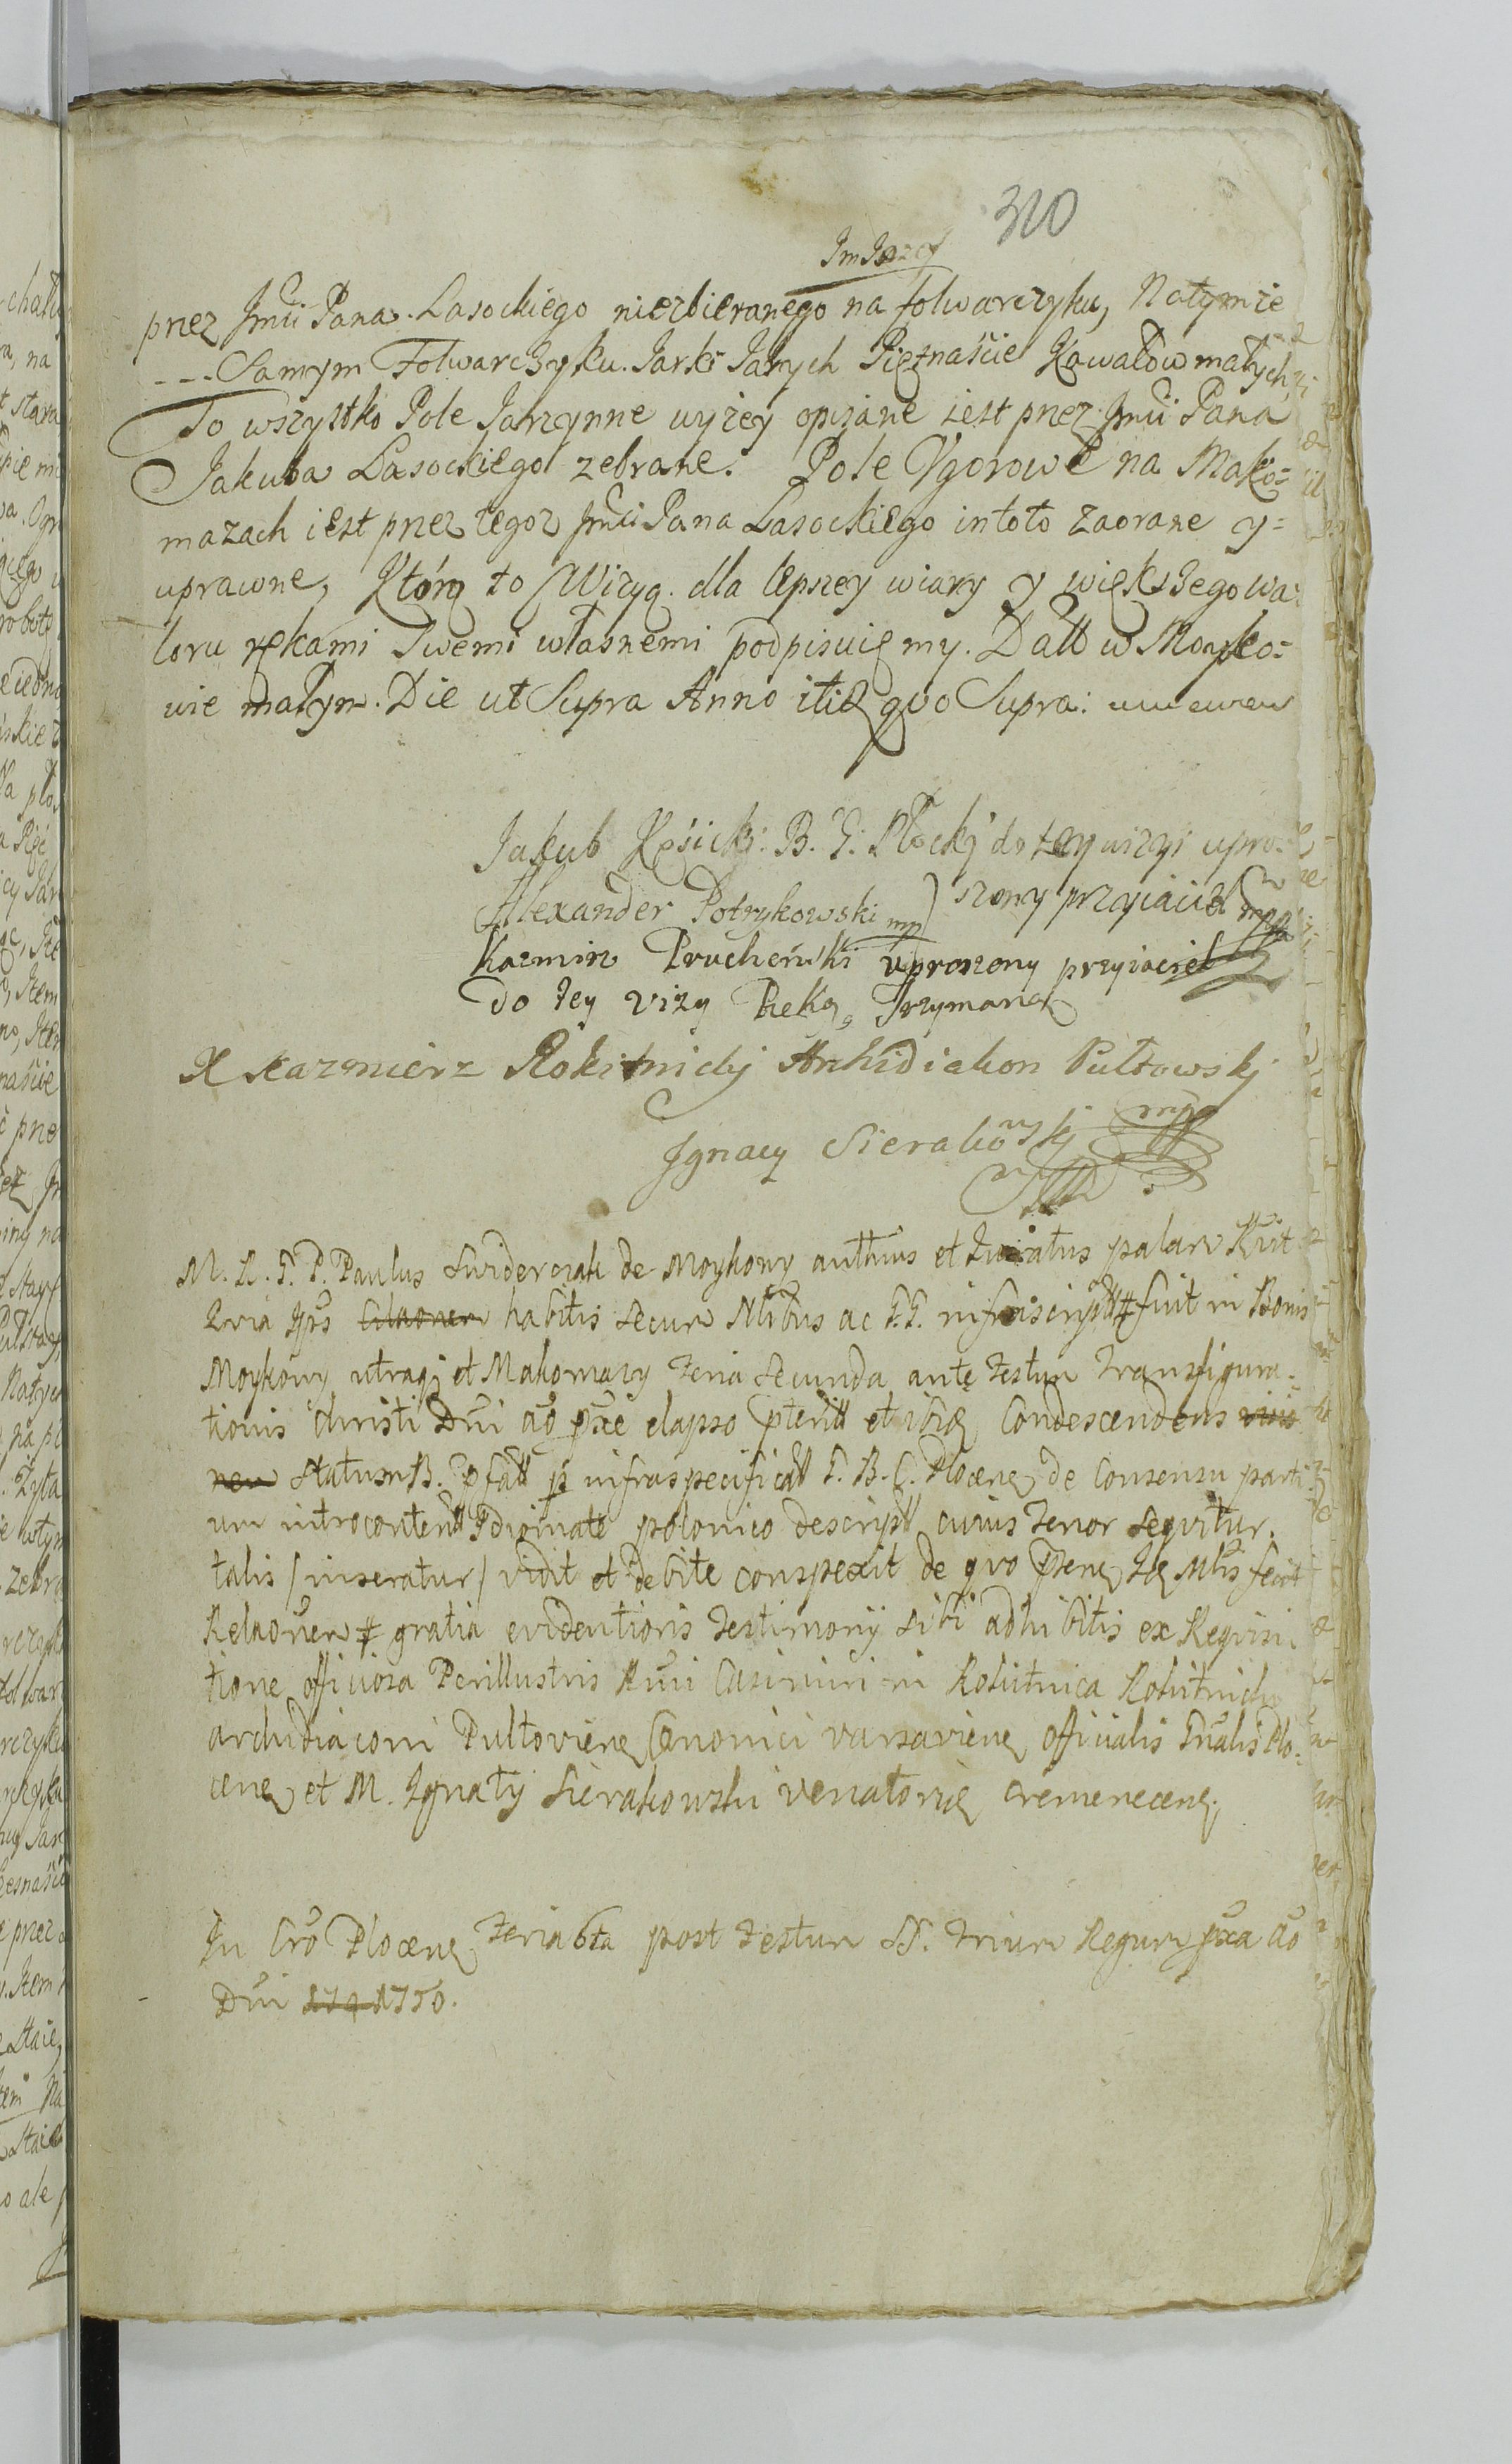 310
przez Jmći Pana Lasockiego niezbieranego na folwarczyku, Natymże
---Samym Folwarczyku. Jarki Jarych Piętnaście Kawałow małych,
To wszystko Pole Jarzynne wyżey opisane iest przez Jmći Pana
Jakuba Lasockiego zebrane. Pole Ugorowe na Mako=
mazach iest przez tegoż Jmći Pana Lasockiego intoto zaorane y=
uprawne, Którą to Wizyą dla lepszey wiary y większego wa:
loru rękami Swemi własnemi podpisuię my. Datt w Moyko=
wie małym. Die ut Supra Anno itiq quo Supra:
Jakub Kosicki B. G. Płocky do tey wizyi upro=
szony przyiaciel mp
Alexander Potrykowski mp
Kazmirz Prucheński uproszony przyiaciel
do tey vizy Ręką Trzymaną
X Kazmierz Rokitnicky Archidiakon Pułtowsky
Ignacy Sierakowsky mp
M. R. G. P. Paulus Swiderczak de Moykowy authus et Juratus palam
Quia habitis secum Nlibus ac G.G. infrascriptt fuit in Bonis
Moykowy utraq et Makomazy feria secunda ante festum transfigura=
tionis Christi Dni ao elapso pteritt et ibiq Condescendens
Statum B. pfatt p infraspecificatt G. B. C. Plocen de Consensu parti
um introcontentt Idiomate polonico descriptt cuius tenor sequitur.
talis /inseratur/ vidit et debite conspexit de quo fecit
Relaonem # gratia evidentioris testimony sibi adhibitis ex Requisi
tione officiosa Perillustris Rmi Casimiri in Rokitnica Rokitnicki
archidiaconi Pultovien Canonici varsavien officialis Gnalis Plo=
cen et M. Ignaty Sierakowski venatoris cremenecen,
In Cro Plocen feria 6ta post festum SS. trium Regum pxa ao
Dni 1750.